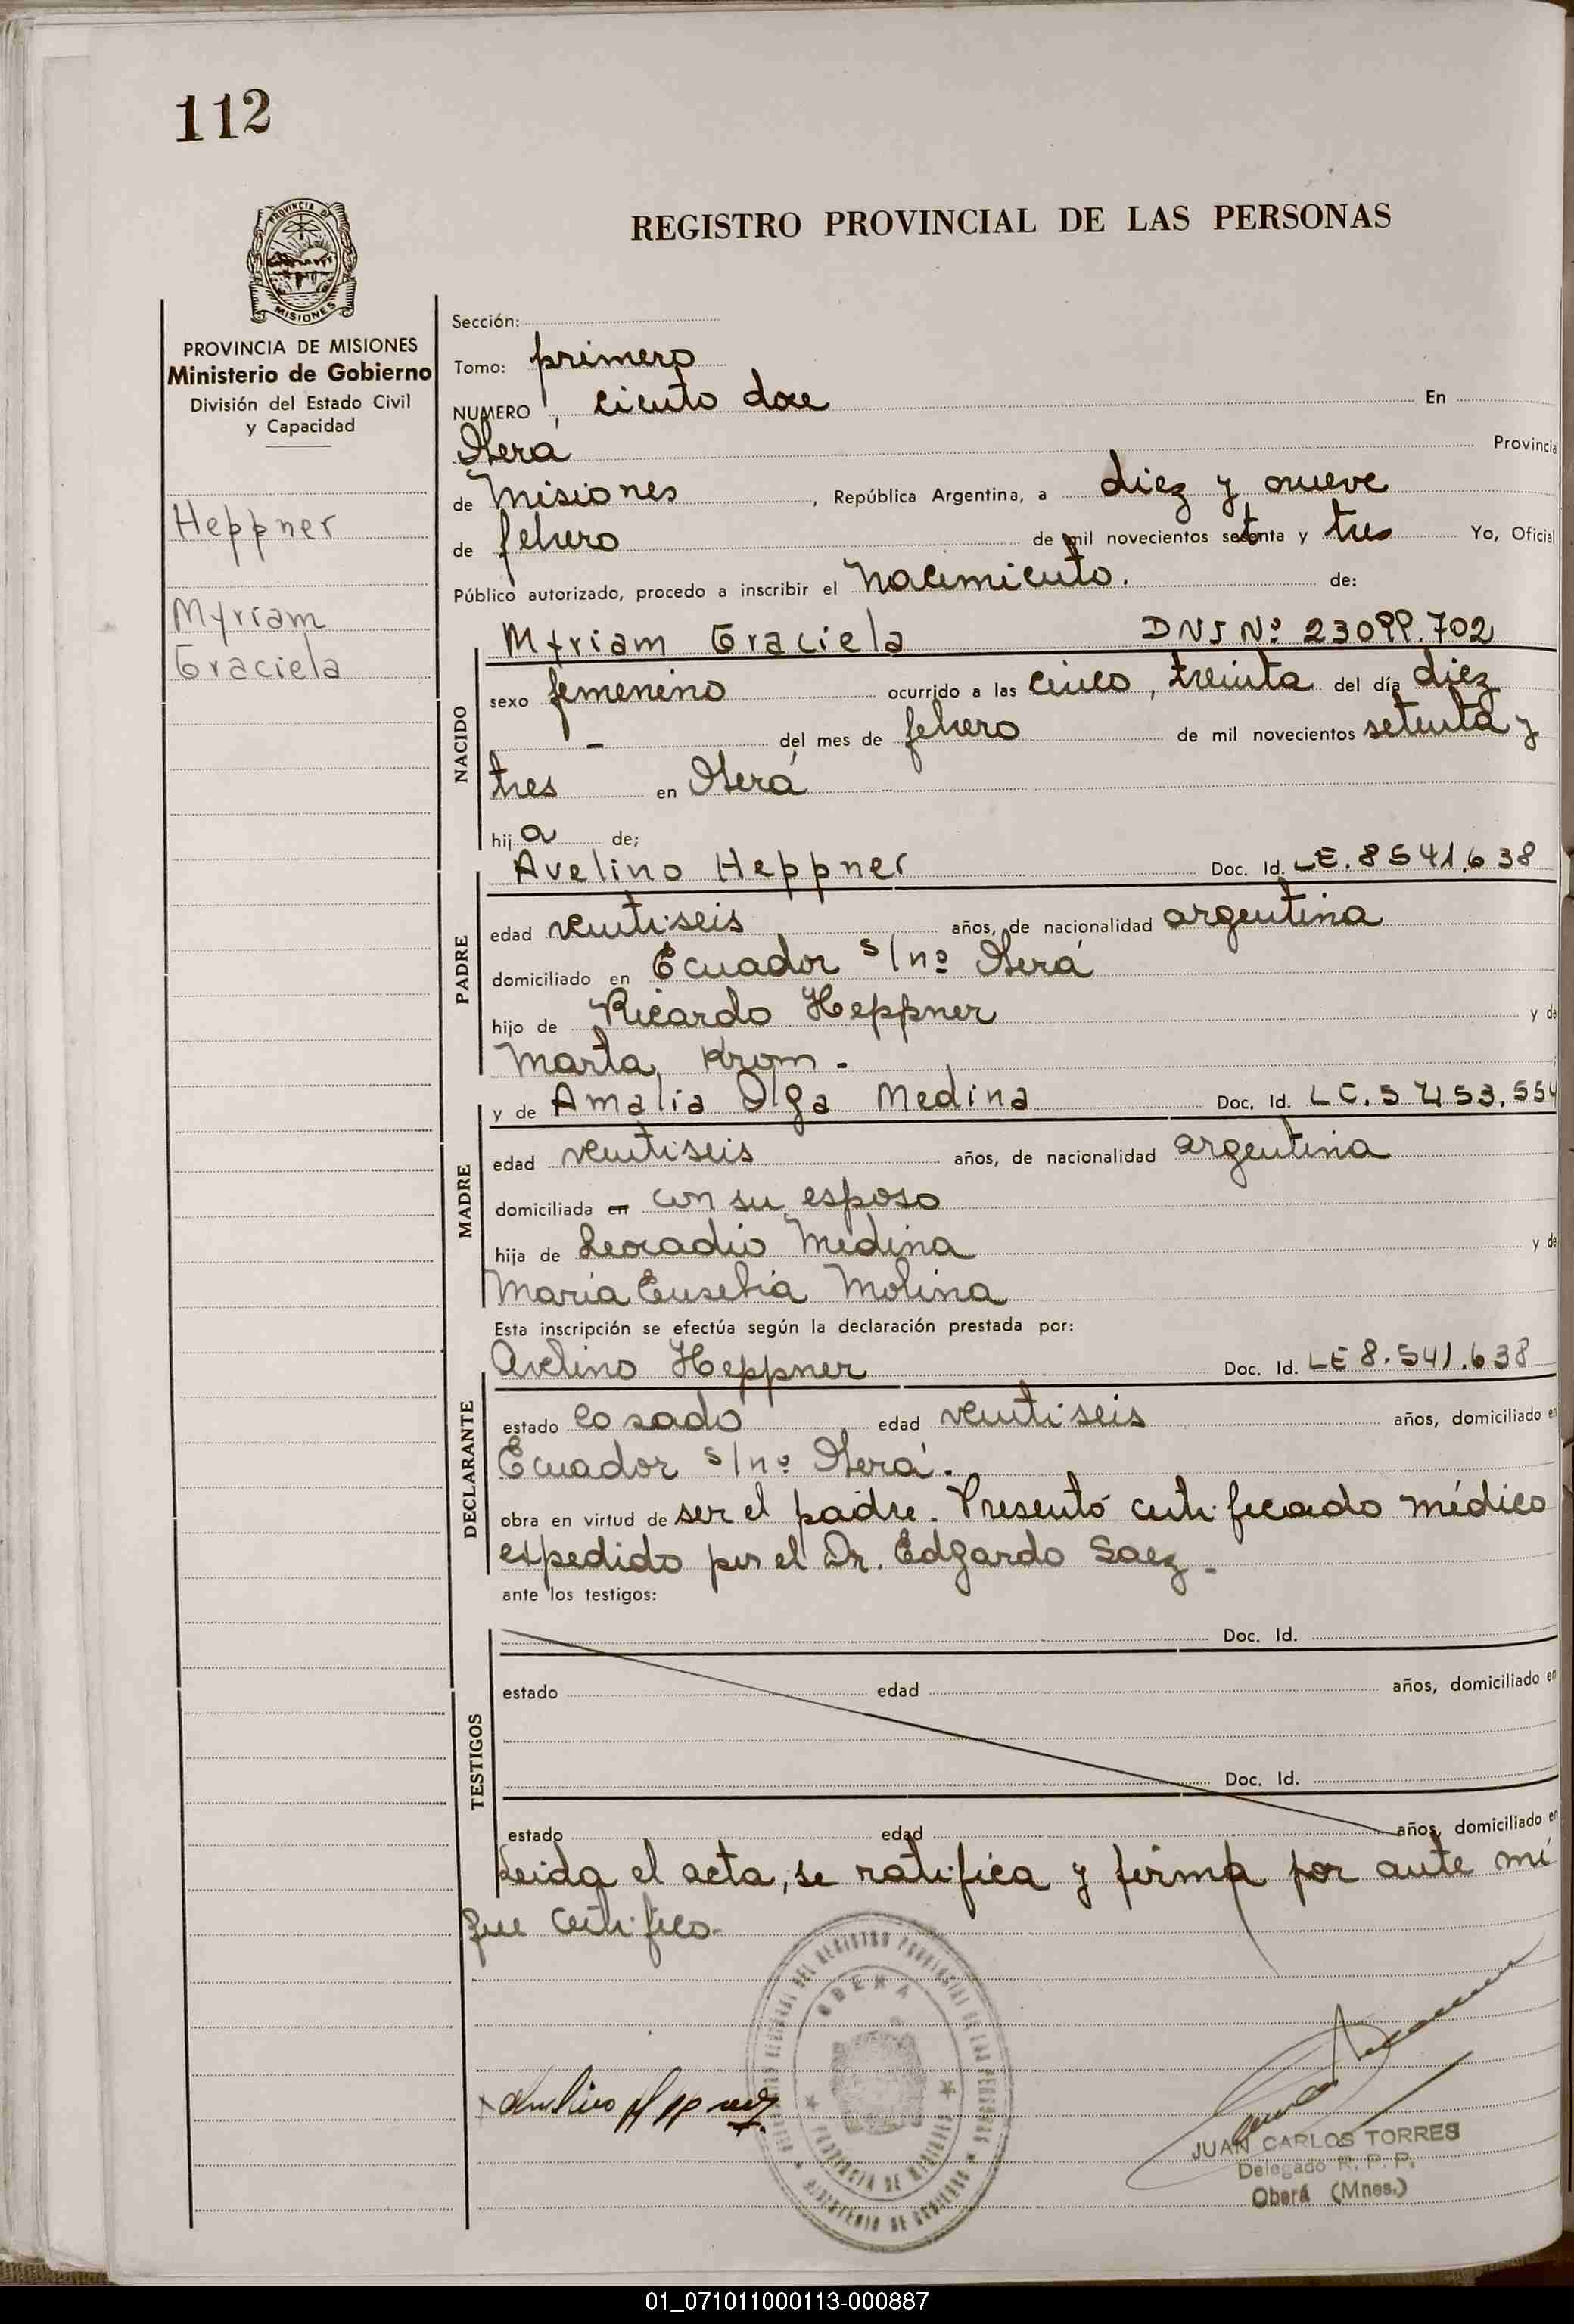 112
REGISTRO PROVINCIAL DE LAS PERSONAS
PROVINCIA DE
MISIONES
PROVINCIA DE MISIONES
Ministerio de Gobierno
División del Estado Civil
y Capacidad
Heppner
Myriam
Graciela
Sección:
Tomo: primero
NUMERO ciento doce En
Oberá Provincia
de Misiones, República Argentina, a diez y nueve
de febrero de mil novecientos setenta y tres Yo, Oficial
Público autorizado, procedo a inscribir el Nacimiento. de:
Myriam Graciela DNI Nº 23099.702
NACIDO
sexo femenino ocurrido a las cinco, treinta del día diez
- del mes de febrero de mil novecientos setenta y
tres en Oberá
hija de;
PADRE
Avelino Heppner Doc. Id. LE. 8541.638
edad veintiseis años, de nacionalidad argentina
domiciliado en Ecuador s/nº Oberá
hijo de Ricardo Heppner y de
Marta Krom -
MADRE
y de Amalia Olga Medina Doc. Id. LC. 5453.554
edad veintiseis años, de nacionalidad argentina
domiciliada en con su esposo
hija de Leocadio Medina y de
Maria Eusebia Molina
Esta inscripción se efectúa según la declaración prestada por:
DECLARANTE
Avelino Heppner Doc. Id. LE 8.541.638
estado casado edad veintiseis años, domiciliado en
Ecuador s/nº Oberá.
obra en virtud de ser el padre. Presentó certificado médico
expedido por el Dr. Edgardo Saez -
ante los testigos:
TESTIGOS
Doc. Id.
estado edad años, domiciliado en
Doc. Id.
estado edad años, domiciliado en
Leida el acta, se ratifica y firma por ante mi
que certifico.
Avelino Heppner
OBERA
PROVINCIA DE MISIONES
MINISTERIO DE GOBIERNO
JUAN CARLOS TORRES
Delegado R. P. P.
Oberá (Mnes.)
01_071011000113-000887